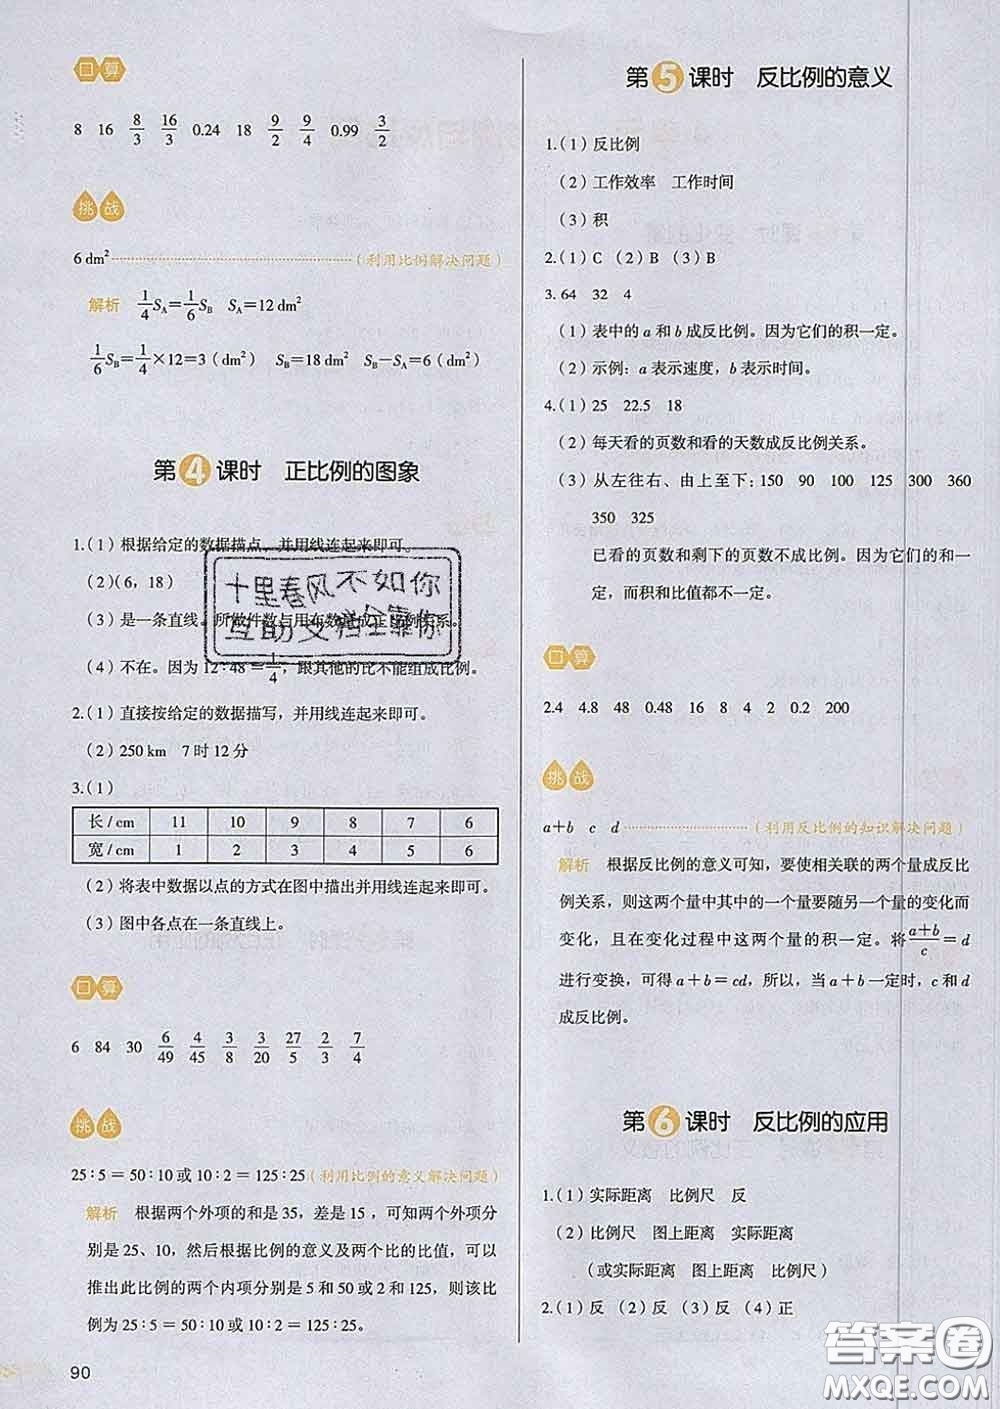 口算
8 16 8/3 16/3 0.24 18 9/2 9/4 0.99 3/2
挑战
6 dm²（利用比例解决问题）
解析 1/4 S_A＝1/6 S_B S_A＝12 dm²
1/6 S_B＝1/4×12＝3（dm²） S_B＝18 dm² S_B－S_A＝6（dm²）
第4课时 正比例的图象
1.（1）根据给定的数据描点，并用线连起来即可。
（2）(6，18)
（3）是一条直线。所做件数与用布数量成正比例关系。
（4）不在。因为 12∶48＝1/4，跟其他的比不能组成比例。
2.（1）直接按给定的数据描写，并用线连起来即可。
（2）250 km 7 时 12 分
3.（1）
长/cm 11 10 9 8 7 6
宽/cm 1 2 3 4 5 6
（2）将表中数据以点的方式在图中描出并用线连起来即可。
（3）图中各点在一条直线上。
口算
6 84 30 6/49 4/45 3/8 3/20 27/5 2/3 7/4
挑战
25∶5＝50∶10 或 10∶2＝125∶25（利用比例的意义解决问题）
解析 根据两个外项的和是 35，差是 15，可知两个外项分
别是 25、10，然后根据比例的意义及两个比的比值，可以
推出此比例的两个内项分别是 5 和 50 或 2 和 125，则该比
例为 25∶5＝50∶10 或 10∶2＝125∶25。
90
第5课时 反比例的意义
1.（1）反比例
（2）工作效率 工作时间
（3）积
2.（1）C （2）B （3）B
3. 64 32 4
（1）表中的 a 和 b 成反比例。因为它们的积一定。
（2）示例：a 表示速度，b 表示时间。
4.（1）25 22.5 18
（2）每天看的页数和看的天数成反比例关系。
（3）从左往右、由上至下：150 90 100 125 300 360
350 325
已看的页数和剩下的页数不成比例。因为它们的和一
定，而积和比值都不一定。
口算
2.4 4.8 48 0.48 16 8 4 2 0.2 200
挑战
a＋b c d（利用反比例的知识解决问题）
解析 根据反比例的意义可知，要使相关联的两个量成反比
例关系，则这两个量中其中的一个量要随另一个量的变化而
变化，且在变化过程中这两个量的积一定。将(a＋b)/c＝d
进行变换，可得 a＋b＝cd，所以，当 a＋b 一定时，c 和 d
成反比例。
第6课时 反比例的应用
1.（1）实际距离 比例尺 反
（2）比例尺 图上距离 实际距离
（或实际距离 图上距离 比例尺）
2.（1）反 （2）反 （3）反 （4）正
十里春风不如你
互助文档全靠你
答案圈
MXQE.COM